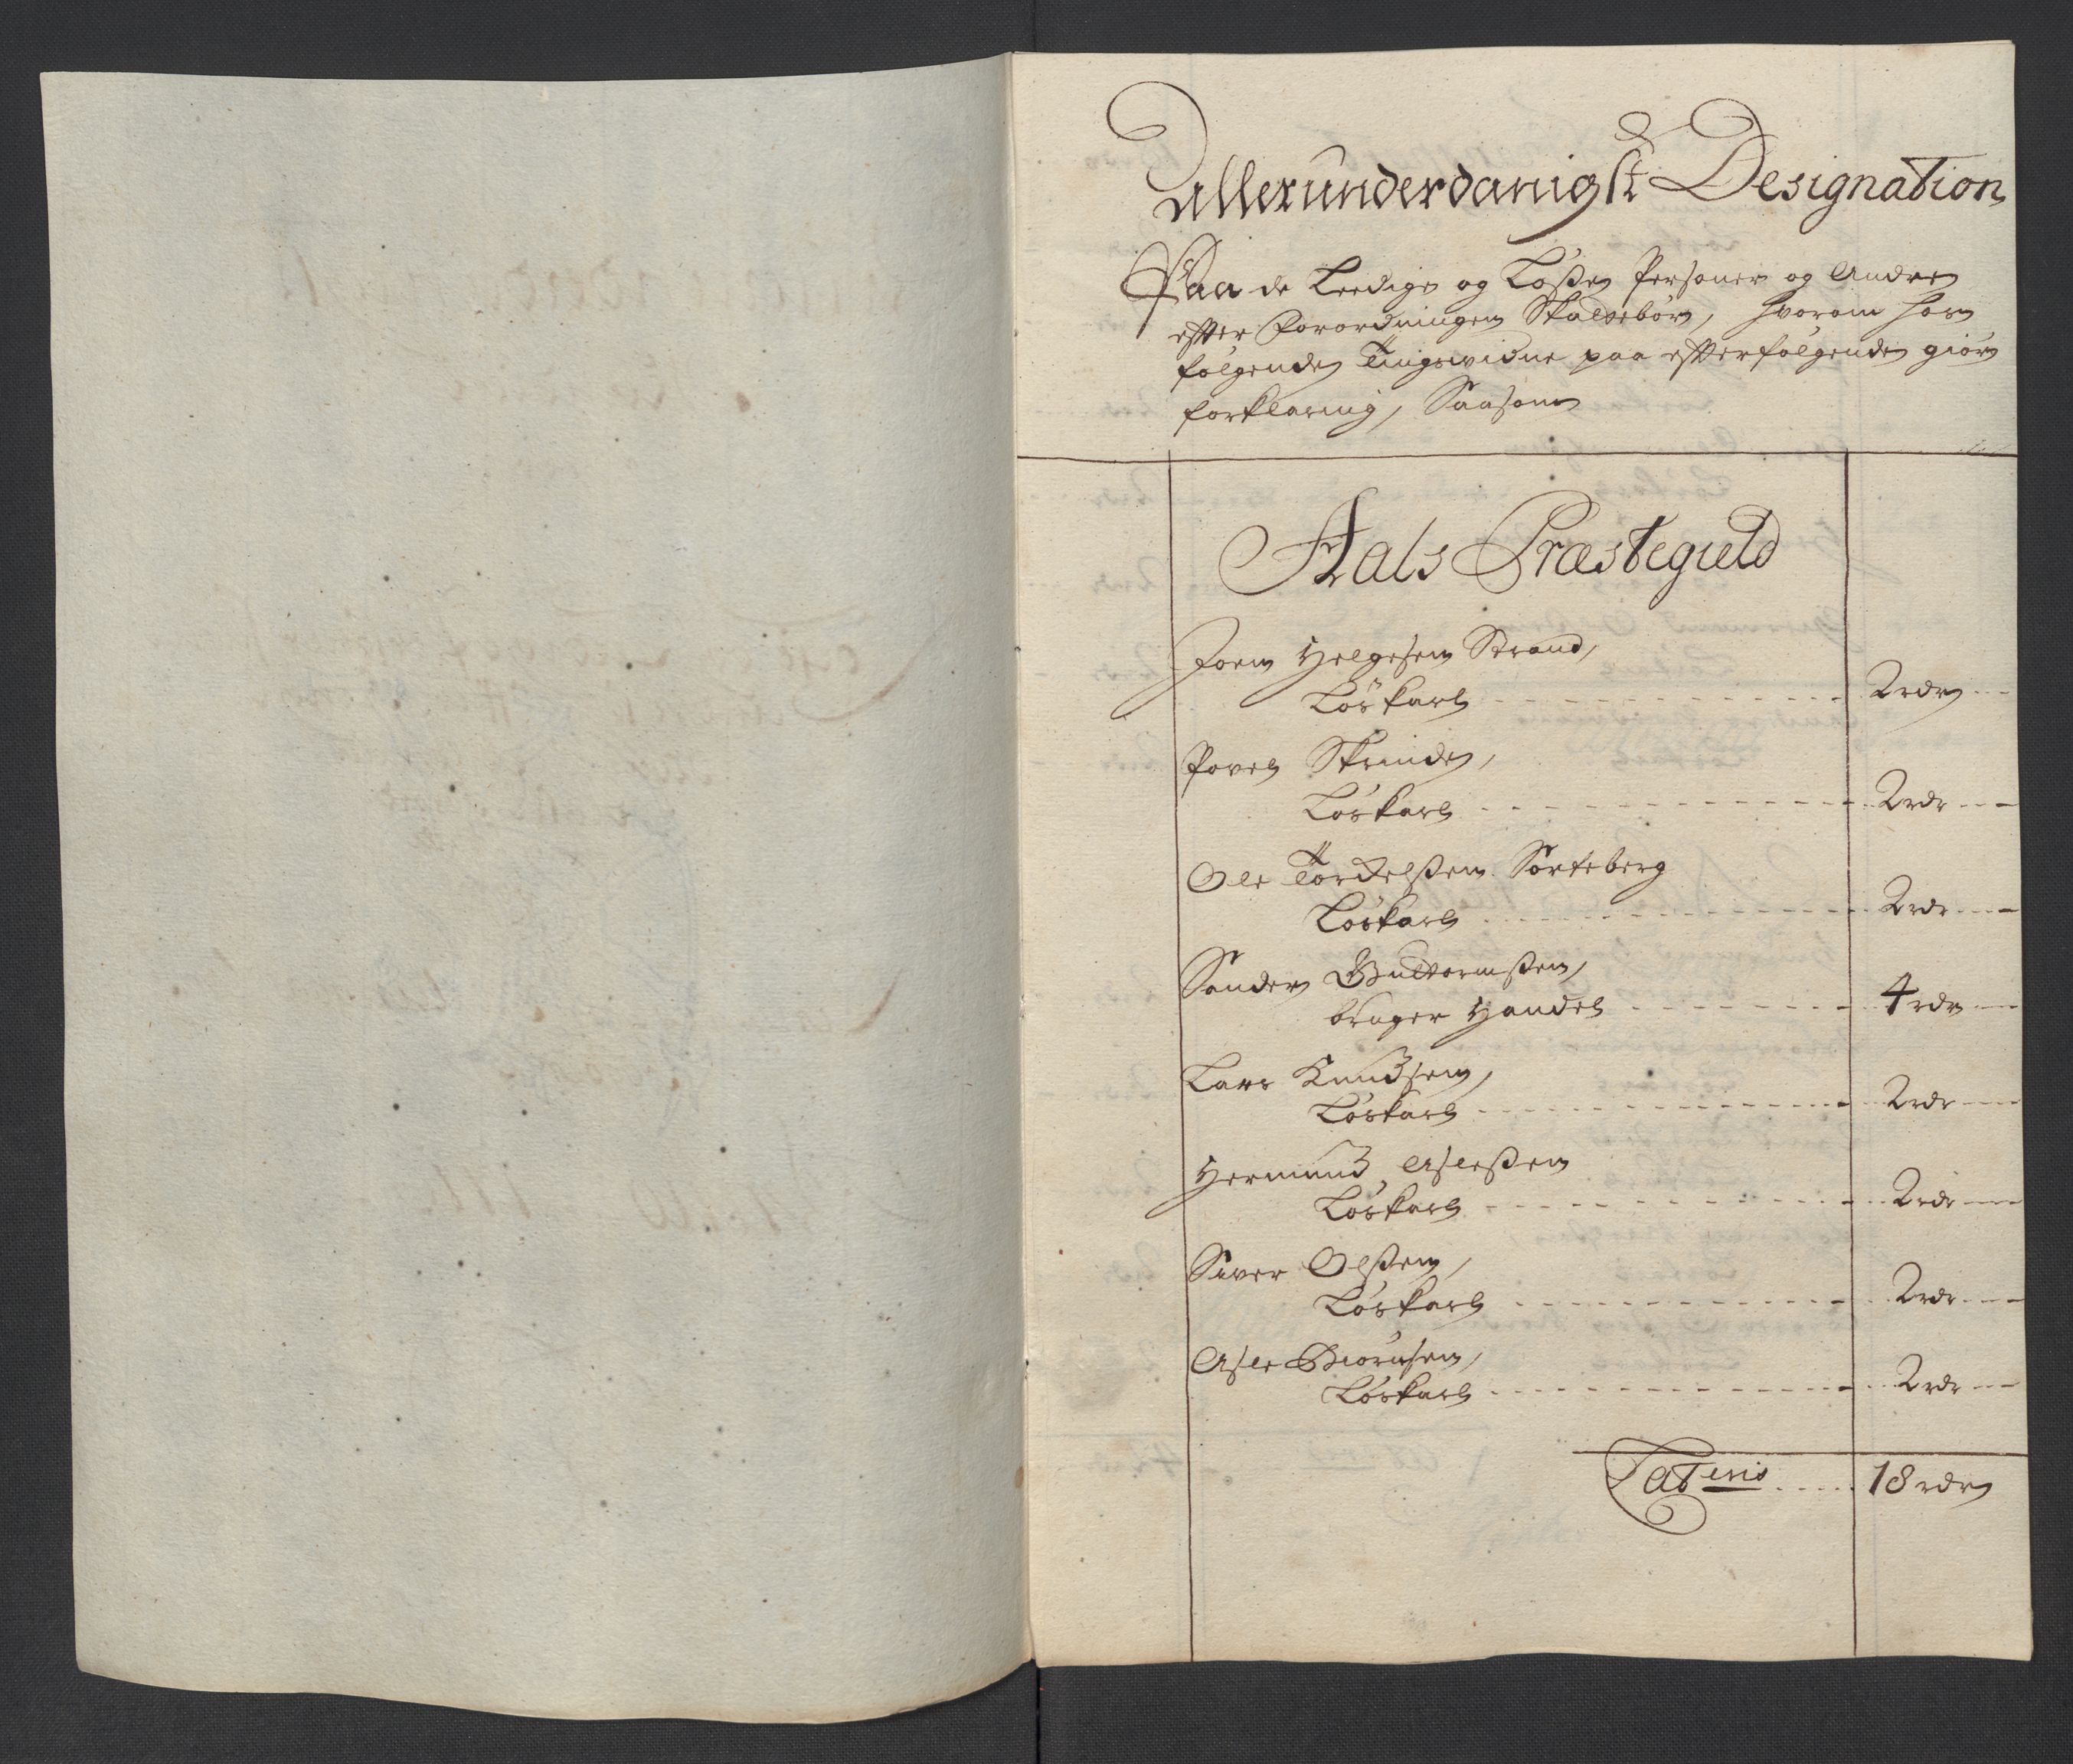 Allerunderdanigst Designation
Paa de Leedige og Løße Personer og Andre
effter Forordningen Skattebør, hvorom hos
følgende Tingsvidne paa effterfølgende giør
forklaring, Saasom
Aals Præstegield
Joen Helgesen Strand,
Løskarl - - - 2 rdr
Povel Skrinde,
Løskarl - - - 2 rdr
Ole Torkelßen Sorteberg
Løskarl - - - 2 rdr
Sander Guttormßen,
bruger Handel - - - 4 rdr
Lars Knudsen,
Løskarl - - - 2 rdr
Hermund Asleßen
Løskarl - - - 2 rdr
Siver Olßen,
Løskarl - - - 2 rdr
Asle Biørnsen,
Løskarl - - - 2 rdr
Lateris - - - 18 rdr